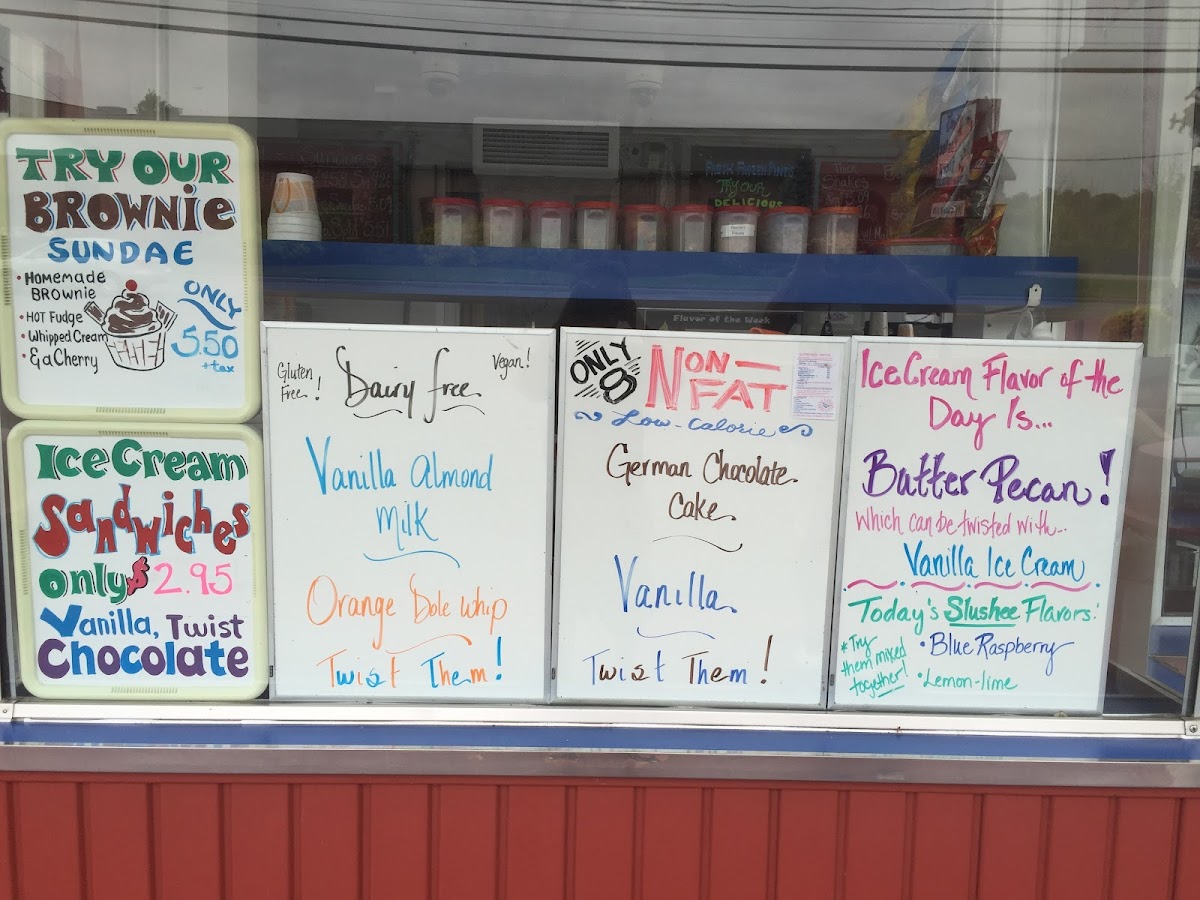 TRY OUR
BROWNiE
SUNDAE
• Homemade
BROWNIE
• HOT Fudge
• Whipped Cream
• & a Cherry
ONLY
5.50
+ tax
IceCream
Sandwiches
only $2.95
Vanilla, Twist
Chocolate
Gluten
Free!
Dairy free
Vegan!
Vanilla Almond
Milk
Orange Dole Whip
Twist Them!
ONLY
8
NON-
FAT
Low-Calorie
German Chocolate
Cake
Vanilla
Twist Them!
IceCream Flavor of the
Day Is...
Butter Pecan!
Which can be twisted with...
Vanilla Ice Cream
Today's Slushee Flavors:
*Try
them mixed
together!
• Blue Raspberry
• Lemon-lime
TRY OUR
DELICIOUS
Flavor of the Week